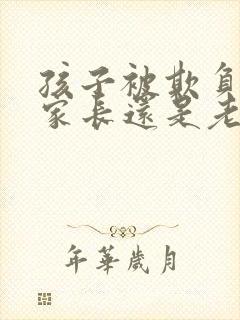 孩子被欺負
家長還是老
年華歲月